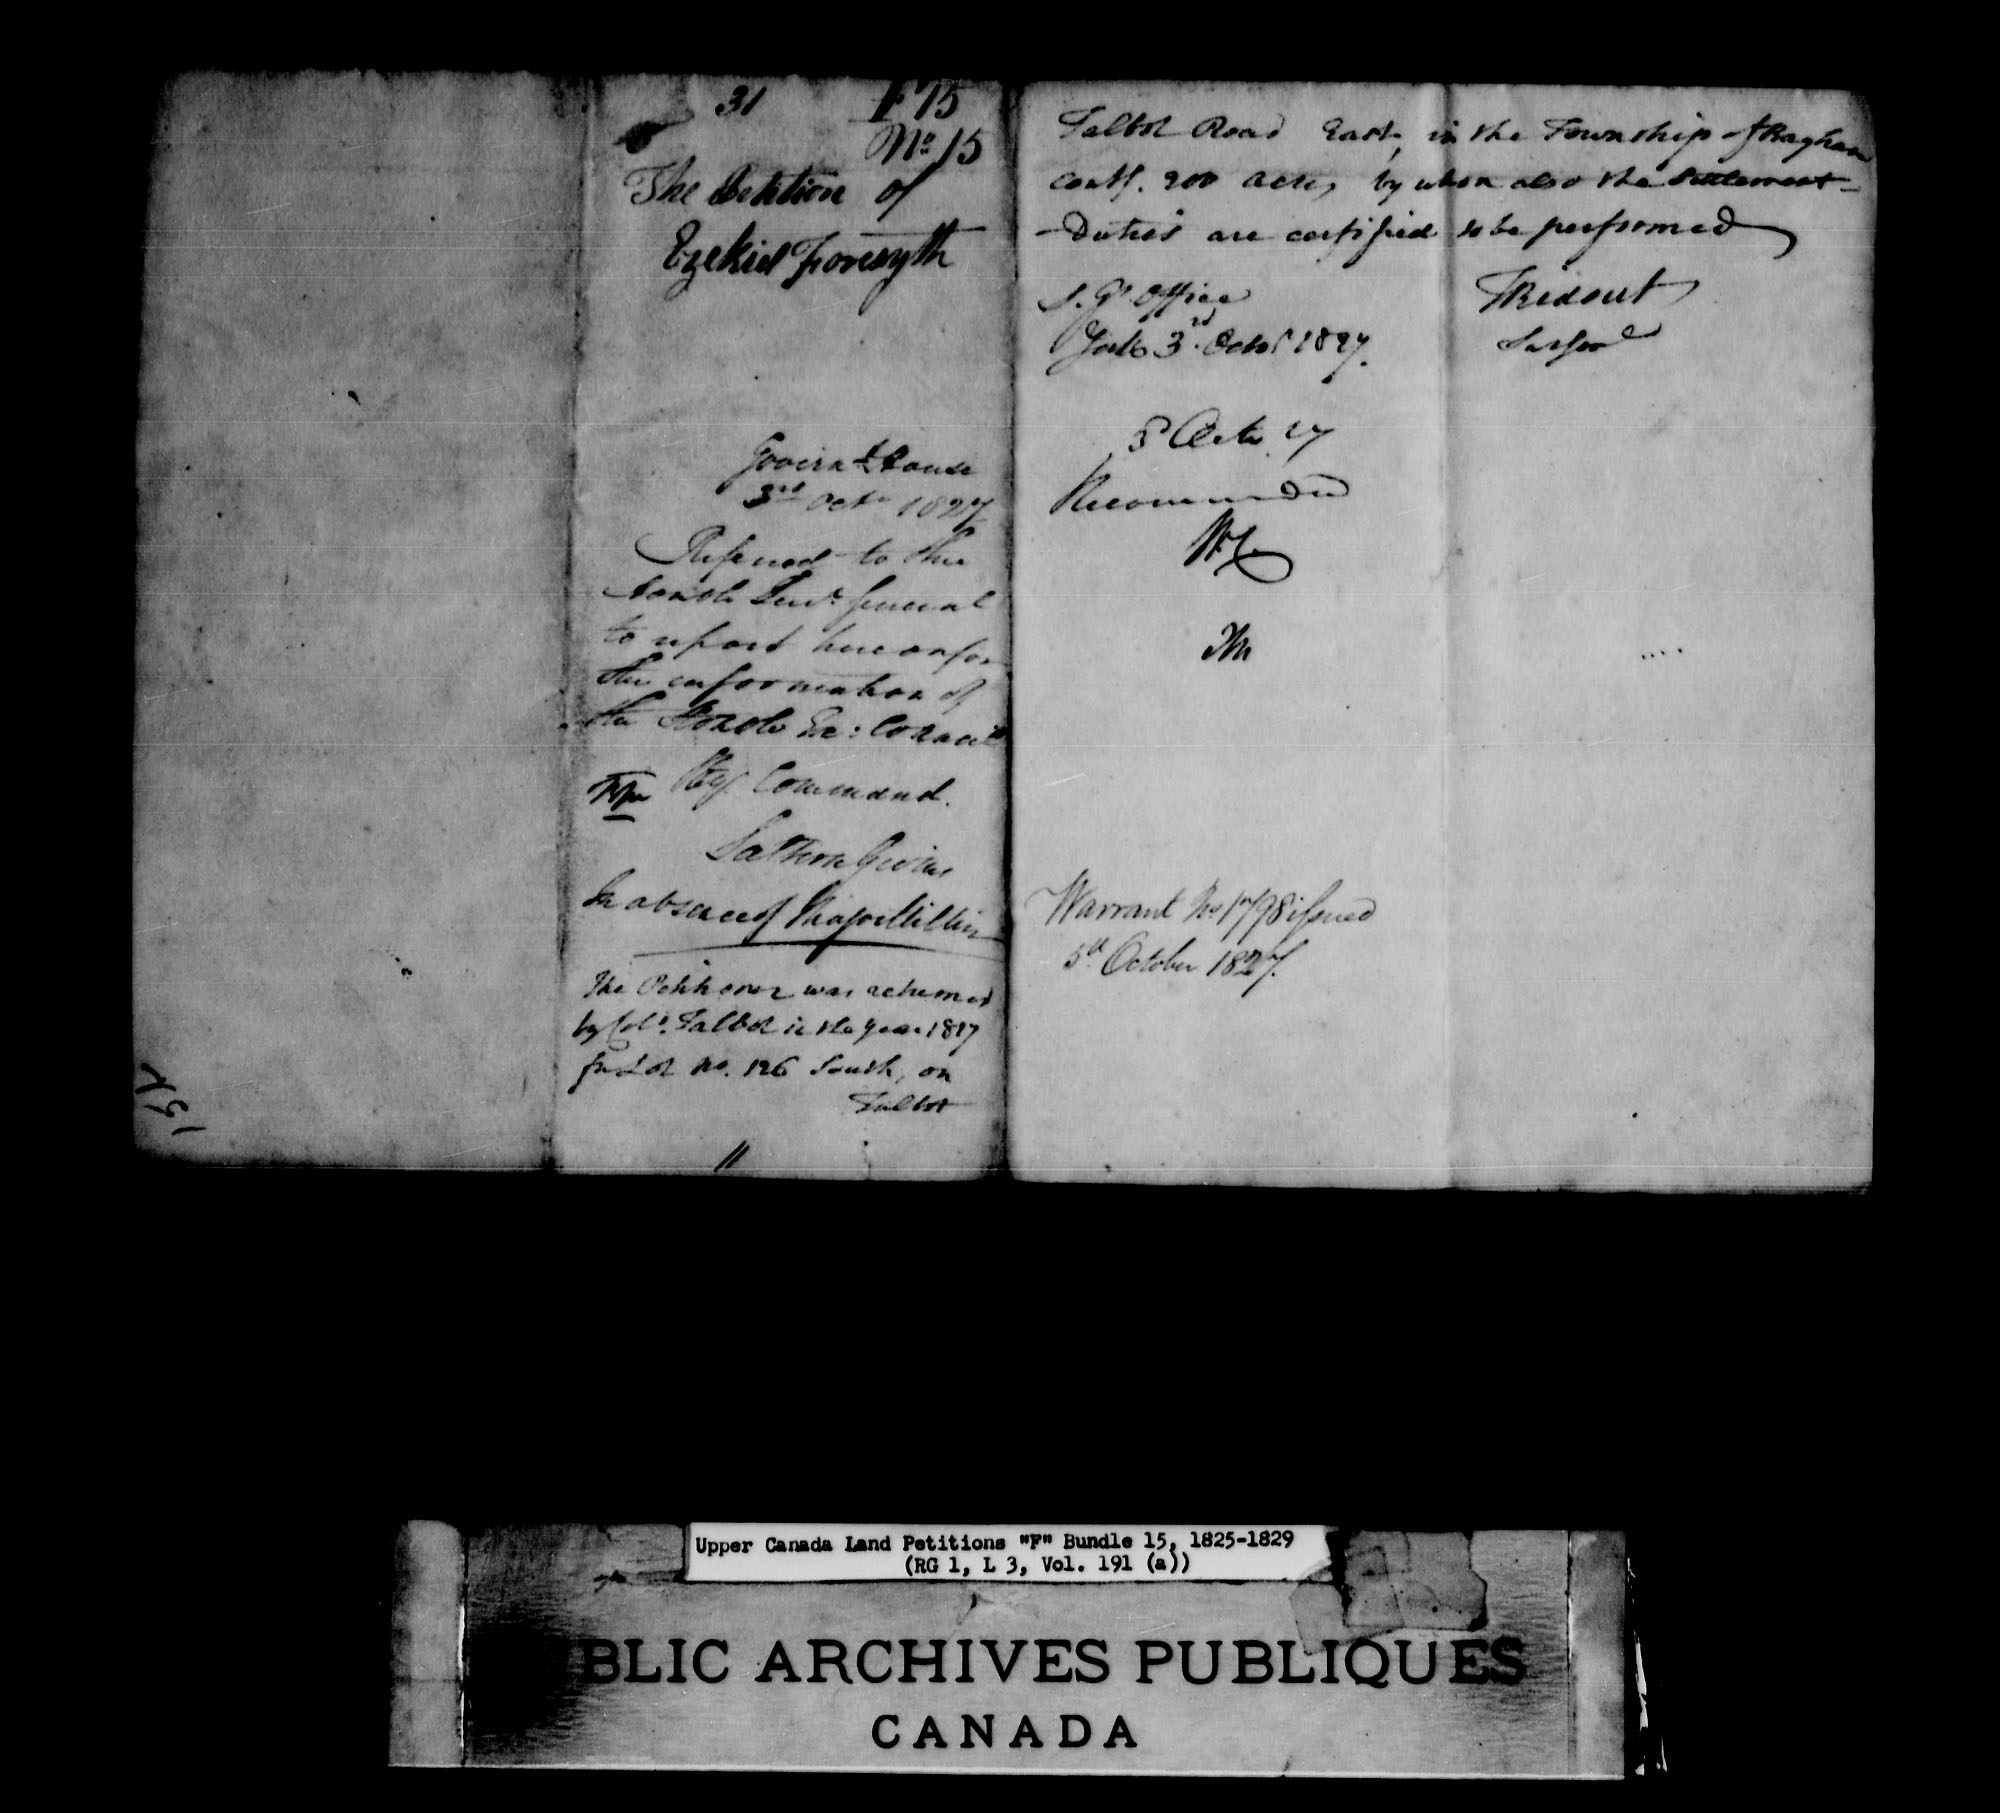 31 F 15
No 15
The Petition of
Ezekiel Forsyth
Governt House
3rd Octr 1827
Referred to the
Honble Survr General
to report hereon for
the information of
the Honble Ex: Council
By Command.
In absence of Major Hillier
The Petitioner was returned
by Coln. Talbot in the year 1817
for Lot No. 126 South, on
Talbot
11
Talbot Road East, in the Township of Bayham
contg. 200 acres, by whom also the Settlement
Duties are certified to be performed
S. Gl. Office
York 3rd Octor 1827.
TRidout
Surv Genl
5 Octr. 27
Recommended
Warrant No 1798 issued
5th October 1827.
Upper Canada Land Petitions "F" Bundle 15, 1825-1829
(RG 1, L 3, Vol. 191 (a))
BLIC ARCHIVES PUBLIQUES
CANADA